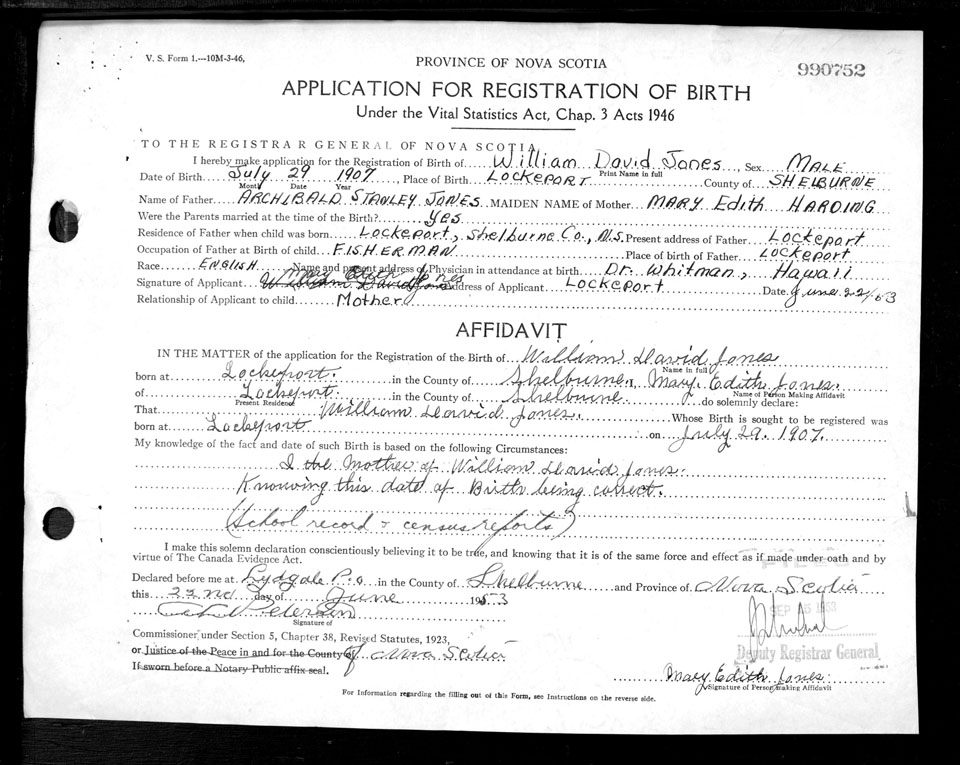 V. S. Form 1.---10M-3-46,
PROVINCE OF NOVA SCOTIA
990752
APPLICATION FOR REGISTRATION OF BIRTH
Under the Vital Statistics Act, Chap. 3 Acts 1946
TO THE REGISTRAR GENERAL OF NOVA SCOTIA
I hereby make application for the Registration of Birth of William David Jones, Sex MALE
Print Name in full
Date of Birth July 29 1907, Place of Birth LOCKEPORT County of SHELBURNE
Month Date Year
Name of Father ARCHIBALD STANLEY JONES MAIDEN NAME of Mother MARY Edith HARDING
Were the Parents married at the time of the Birth? Yes
Residence of Father when child was born Lockeport, Shelburne Co., N.S. Present address of Father Lockeport
Occupation of Father at Birth of child FISHERMAN Place of birth of Father Lockeport
Race ENGLISH Name and present address of Physician in attendance at birth Dr. Whitman, Hawaii
Signature of Applicant William David Jones Mary Edith Jones Address of Applicant LOCKEPORT Date June 22/53
Relationship of Applicant to child Mother
AFFIDAVIT
IN THE MATTER of the application for the Registration of the Birth of William David Jones
Name in full
born at Lockeport. in the County of Shelburne, Mary Edith Jones.
Name of Person Making Affidavit
of Lockeport. in the County of Shelburne do solemnly declare:
Present Residence
That William David Jones. Whose Birth is sought to be registered was
born at Lockeport on July 29. 1907.
My knowledge of the fact and date of such Birth is based on the following Circumstances:
I the Mother of William David Jones.
Knowing this date of Birth being correct.
(School record & census reports)
I make this solemn declaration conscientiously believing it to be true, and knowing that it is of the same force and effect as if made under oath and by
virtue of The Canada Evidence Act.
FILED
Declared before me at Lydgate P.O in the County of Shelburne and Province of Nova Scotia
this 22nd day of June 1953
SEP 1953
Petersen
Signature of
Commissioner under Section 5, Chapter 38, Revised Statutes, 1923,
or Justice of the Peace in and for the County of Nova Scotia
Deputy Registrar General
If sworn before a Notary Public affix seal.
Mary Edith Jones.
Signature of Person making Affidavit
For Information regarding the filling out of this Form, see Instructions on the reverse side.